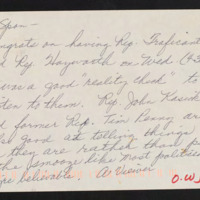 Span -
ngrats on having Rep. Traficant
Rep Hayworth on Wed
was a good "reality check" to
isten to them. Rep. John Kasich
d former Rep. Tim Penny are
so good at telling things
they are rather than
the snooze like most politici
re believable. A Viewer
O.W.